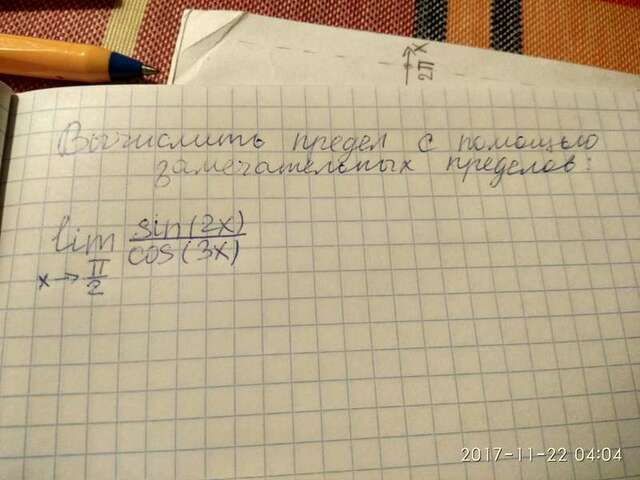 x → π/2
Вычислить предел с помощью
замечательных пределов:
lim x→π/2 sin(2x)/cos(3x)
2017-11-22 04:04